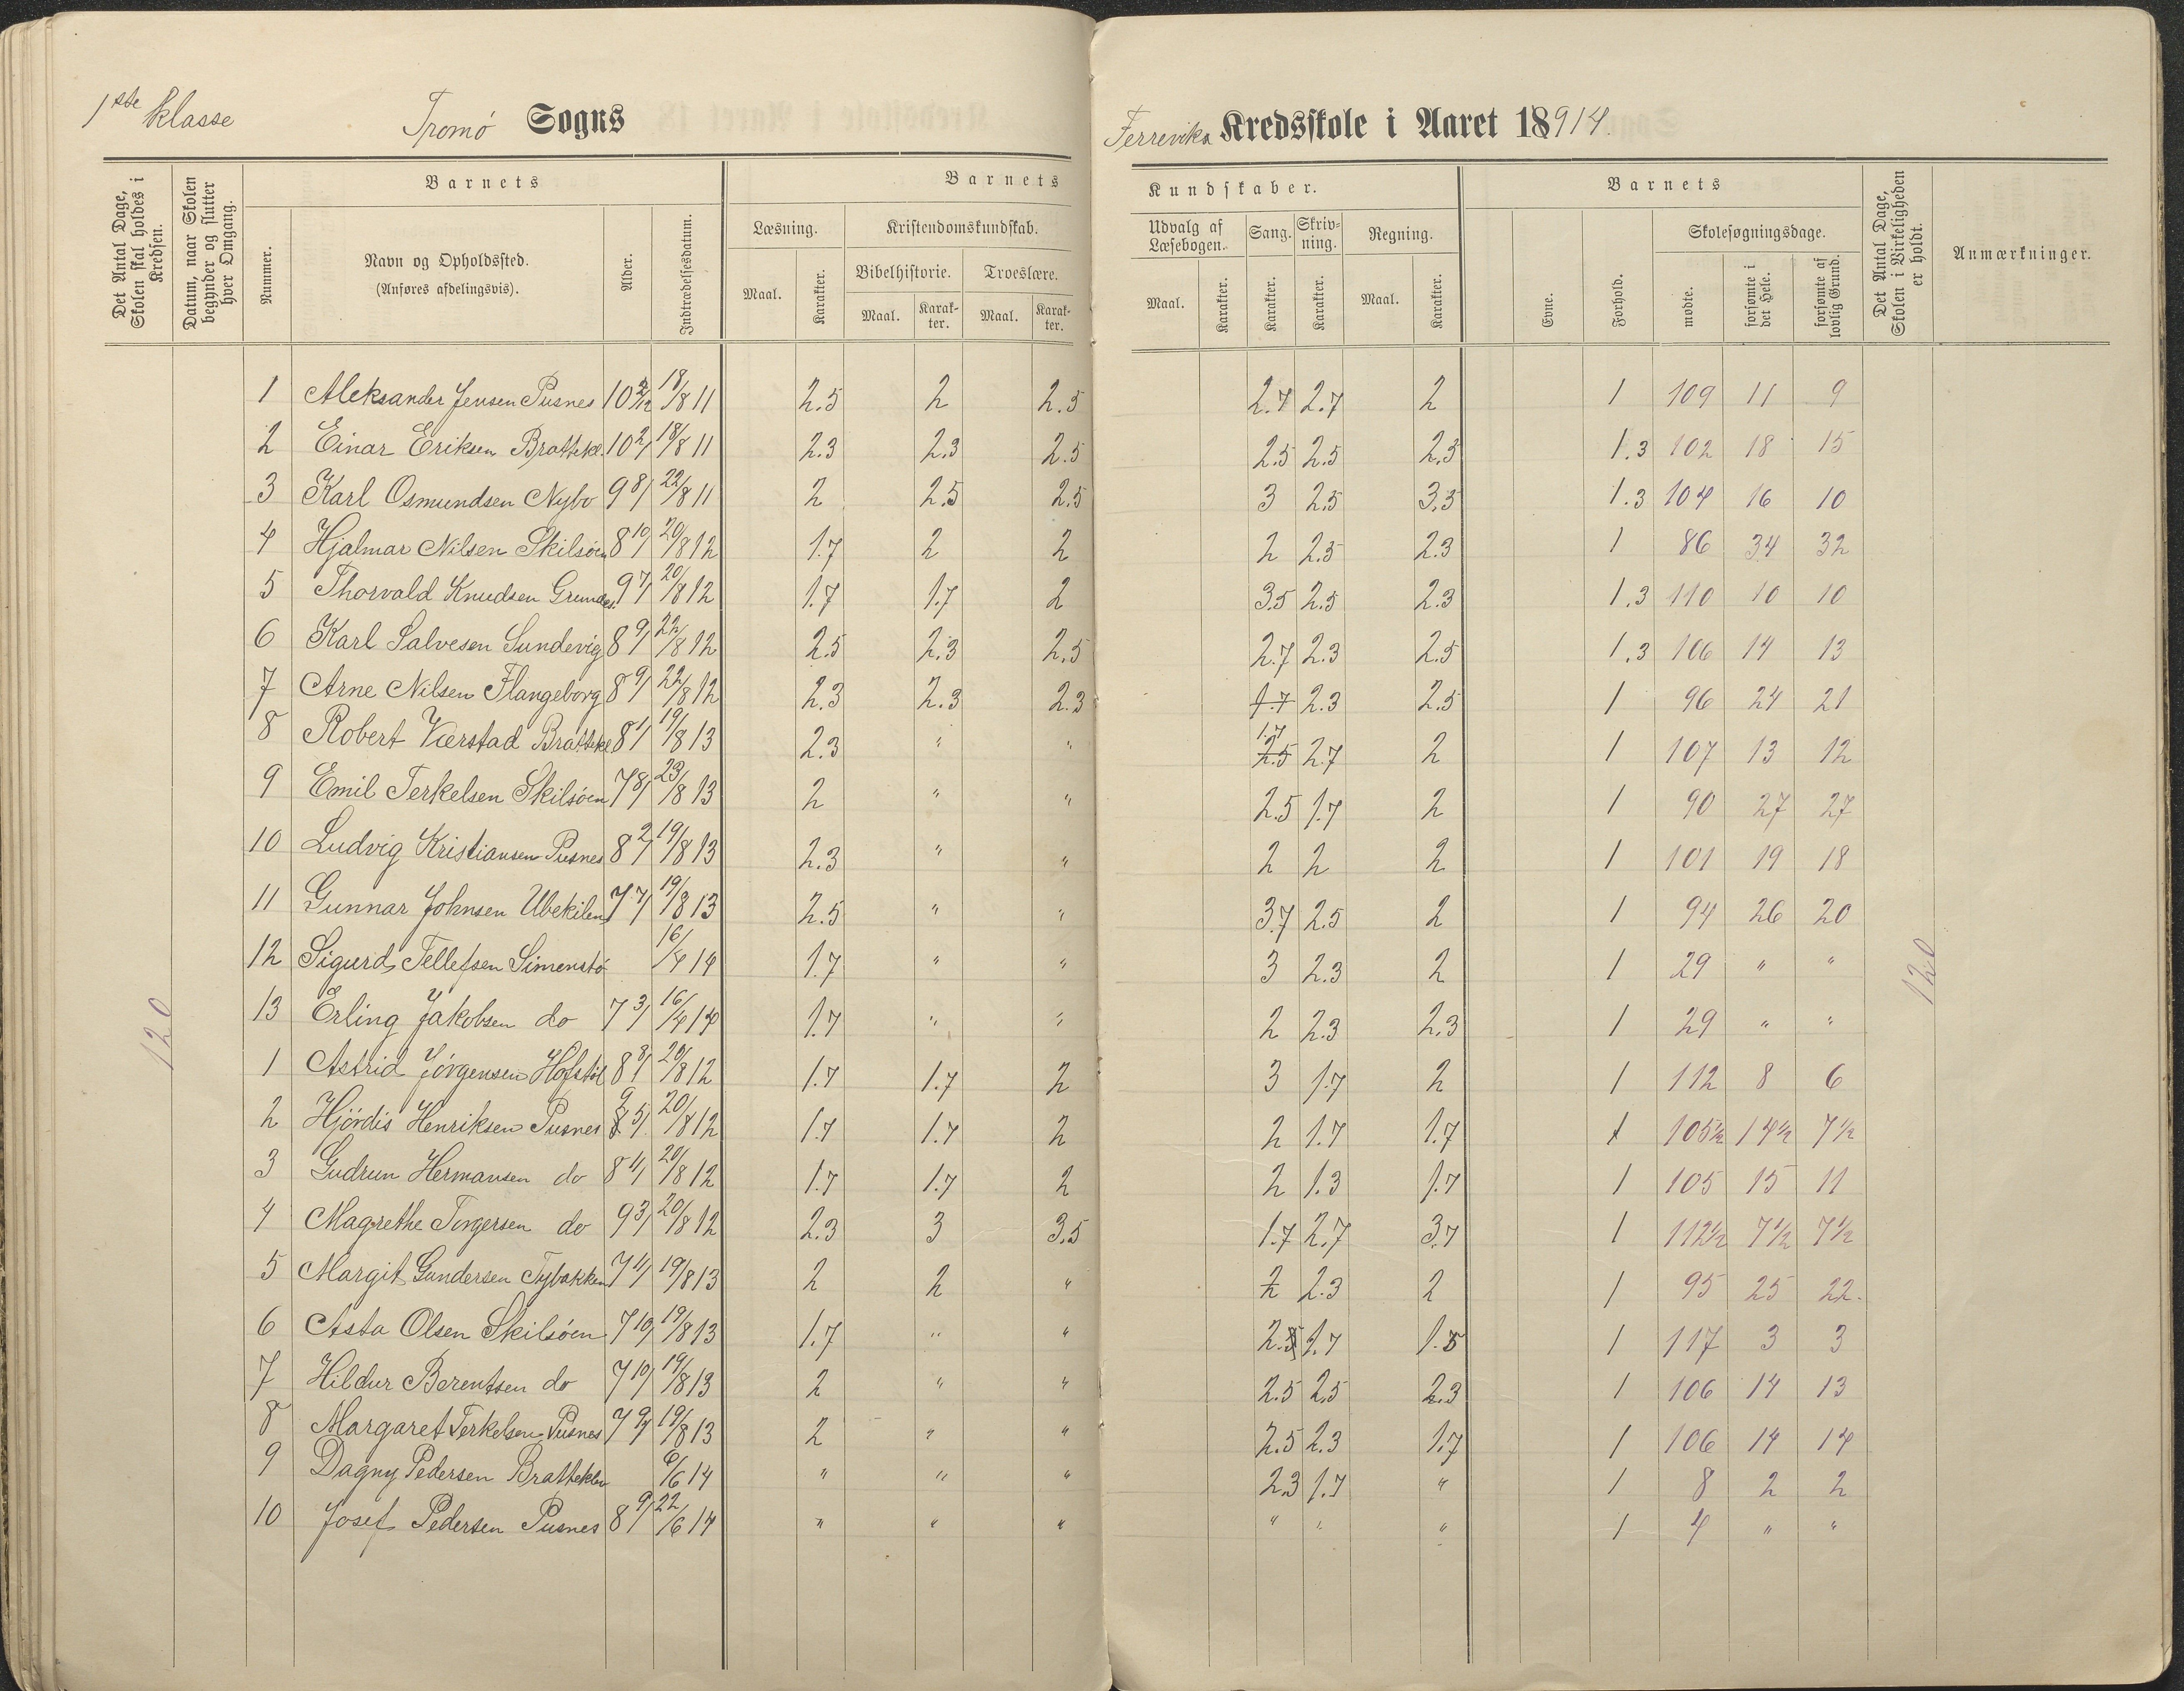 1ste Klasse
Tromö Sogns
Ferrevika Kredsskole i Aaret 18914
Det Antal Dage, Skolen skal holdes i Kredsen.
Datum, naar Skolen begynder og slutter hver Omgang.
Barnets
Nummer.
Navn og Opholdssted.
(Anføres afdelingsvis).
Alder.
Indtrædelsesdatum.
Barnets
Læsning.
Maal.
Karakter.
Kristendomskundskab.
Bibelhistorie.
Maal.
Karakter.
Troeslære.
Maal.
Karakter.
Kundskaber.
Udvalg af Læsebogen.
Maal.
Karakter.
Sang.
Karakter.
Skrivning.
Karakter.
Regning.
Maal.
Karakter.
Barnets
Evne.
Forhold.
Skolesøgningsdage.
mødte.
forsømte i det Hele.
forsømte af lovlig Grund.
Det Antal Dage, Skolen i Virkeligheden er holdt.
Anmærkninger.
120
120
1 Aleksander Jensen Pusnes 10 2/12 18/8 11 2.5 2 2.5 2.7 2.7 2 1 109 11 9
2 Einar Eriksen Brattekl. 10 2/ 18/8 11 2.3 2.3 2.5 2.5 2.5 2.3 1.3 102 18 15
3 Karl Osmundsen Nybo 9 8/ 22/8 11 2 2.5 2.5 3 2.5 3.5 1.3 104 16 10
4 Hjalmar Nilsen Skilsöen 8 10/ 20/8 12 1.7 2 2 2 2.5 2.3 1 86 34 32
5 Thorvald Knudsen Grundes. 9 7/ 20/8 12 1.7 1.7 2 3.5 2.5 2.3 1.3 110 10 10
6 Karl Salvesen Sundevig 8 9/ 22/8 12 2.5 2.3 2.5 2.7 2.3 2.5 1.3 106 14 13
7 Arne Nilsen Flangeborg 8 9/ 22/8 12 2.3 2.3 2.3 1.7 2.3 2.5 1 96 24 21
8 Robert Værstad Brattekl 8 1/ 19/8 13 2.3 " " 1.7 2.5 2.7 2 1 107 13 12
9 Emil Terkelsen Skilsöen 7 8/ 23/8 13 2 " " 2.5 1.7 2 1 90 27 27
10 Ludvig Kristiansen Pusnes 8 2/ 19/8 13 2.3 " " 2 2 2 1 101 19 18
11 Gunnar Johnsen Ubekilen 7 7/ 19/8 13 2.5 " " 3.7 2.5 2 1 94 26 20
12 Sigurd Tellefsen Simenstö 16/4 14 1.7 " " 3 2.3 2 1 29 " "
13 Erling Jakobsen do 7 3/ 16/4 14 1.7 " " 2 2.3 2.3 1 29 " "
1 Astrid Jörgensen Hofstöl 8 8/ 20/8 12 1.7 1.7 2 3 1.7 2 1 112 8 6
2 Hjördis Henriksen Pusnes 9 5/ 20/8 12 1.7 1.7 2 2 1.7 1.7 1 105½ 14½ 7½
3 Gudrun Hermansen do 8 11/ 20/8 12 1.7 1.7 2 2 1.3 1.7 1 105 15 11
4 Magrethe Torgersen do 9 3/ 20/8 12 2.3 3 3.5 1.7 2.7 3.7 1 112½ 7½ 7½
5 Margit Gundersen Tybakken 7 11/ 19/8 13 2 2 " 2 2.3 2 1 95 25 22.
6 Asta Olsen Skilsöen 7 10/ 19/8 13 1.7 " " 2.5 1.7 1.5 1 117 3 3
7 Hildur Berentsen do 7 10/ 19/8 13 2 " " 2.5 2.5 2.3 1 106 14 13
8 Margaret Terkelsen Pusnes 7 9/ 19/8 13 2 " " 2.5 2.3 1.7 1 106 14 14
9 Dagny Pedersen Bratteklev /6 14 " " " 2.3 1.7 " 1 8 2 2
10 Josef Pedersen Pusnes 8 9/ 22/6 14 " " " " " " 1 4 " "